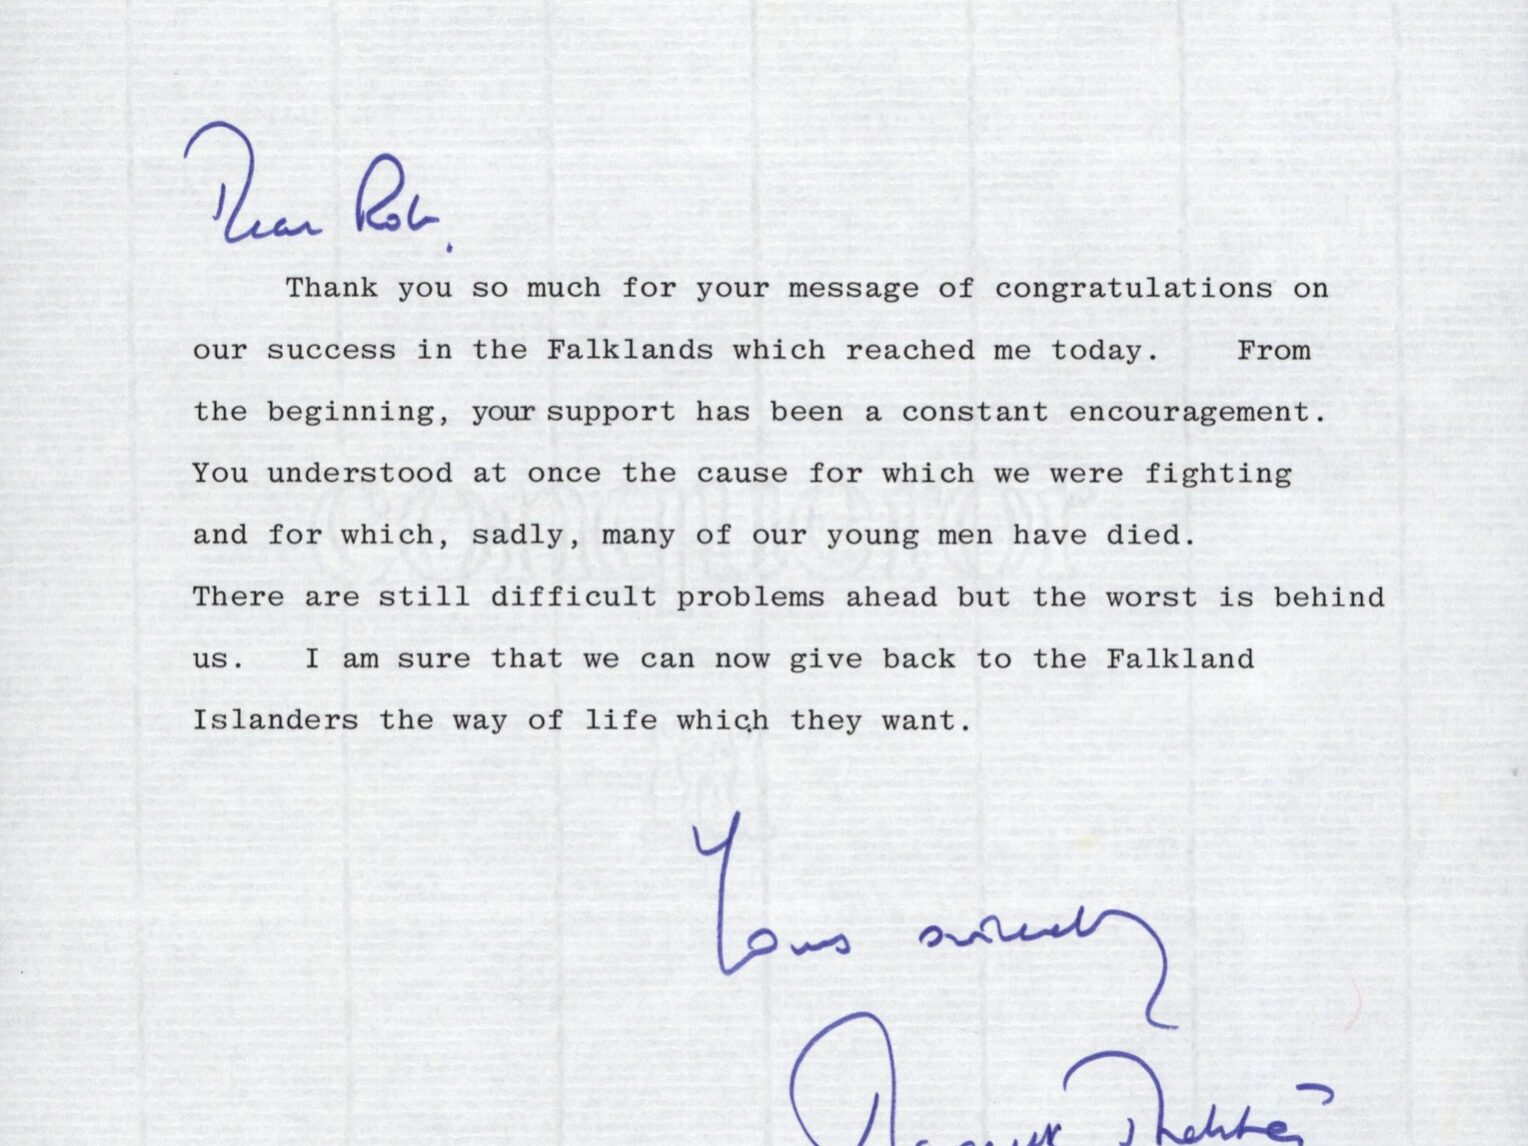 Dear Rob.
Thank you so much for your message of congratulations on
our success in the Falklands which reached me today. From
the beginning, your support has been a constant encouragement.
You understood at once the cause for which we were fighting
and for which, sadly, many of our young men have died.
There are still difficult problems ahead but the worst is behind
us. I am sure that we can now give back to the Falkland
Islanders the way of life which they want.
conqueror
Yours sincerely